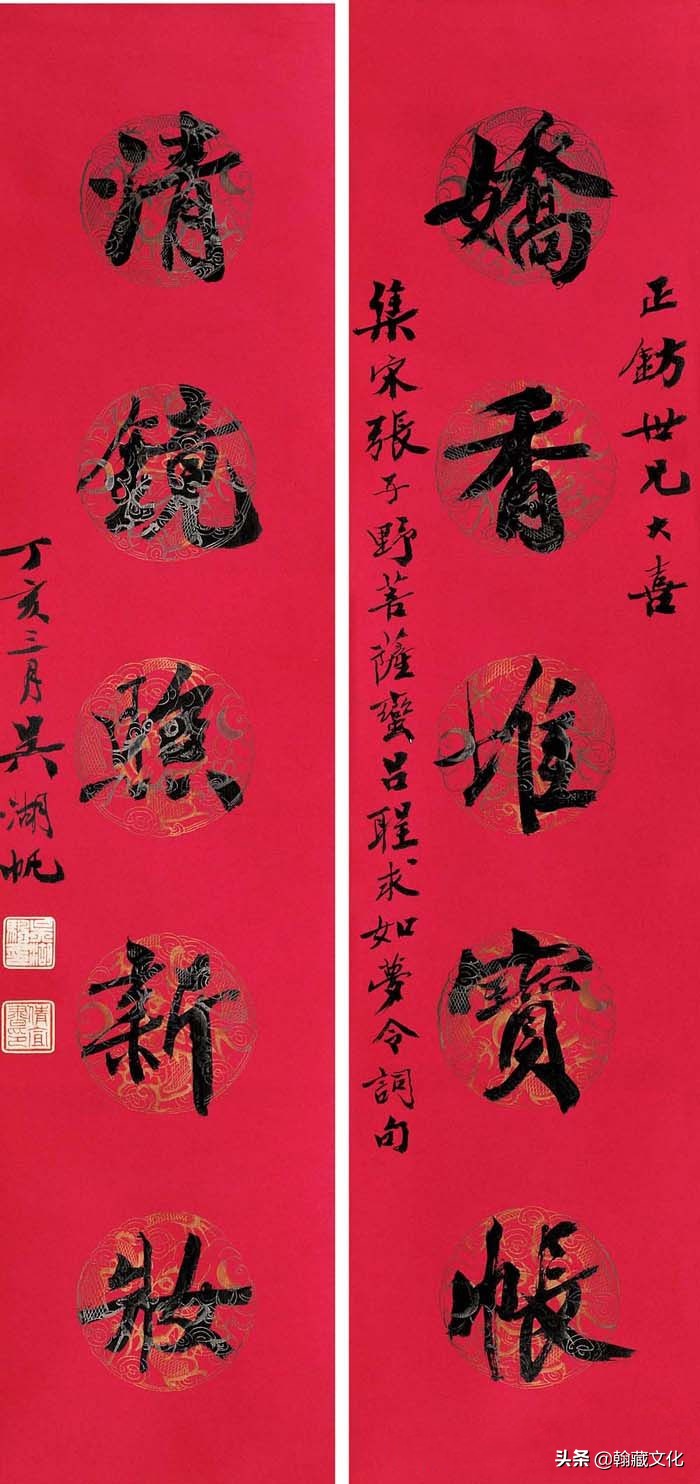 正鈁世兄大喜
嬌香堆寶帳
集宋張子野菩薩蠻呂聖求如夢令詞句
清鏡照新妝
丁亥三月吳湖帆
头条 @翰藏文化